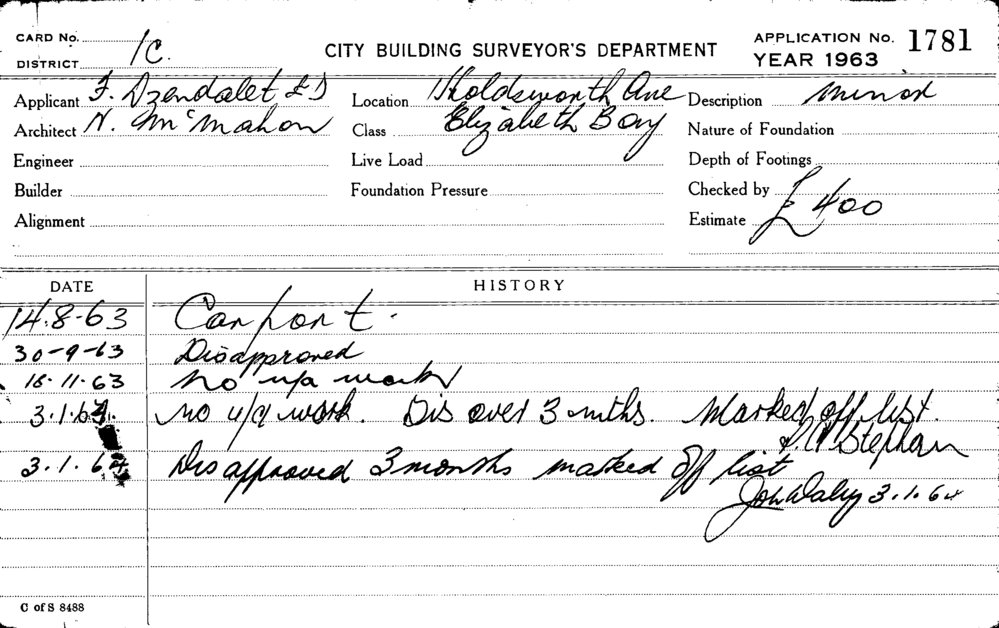 CARD No.
DISTRICT 1C.
CITY BUILDING SURVEYOR'S DEPARTMENT
APPLICATION No. 1781
YEAR 1963
Applicant F. Location Holdsworth Ave Description minor
Architect N. McMahon Class Elizabeth Bay Nature of Foundation
Engineer Live Load Depth of Footings
Builder Foundation Pressure Checked by
Alignment Estimate £400
DATE HISTORY
14.8.63 Carport.
30-9-63 Disapproved
18.11.63 No u/a work
3.1.64 no u/a work. Dis over 3 mths. Marked off list.
Stephan
3.1.64 Disapproved 3 months marked off list
John Daley 3.1.64
C of S 8488